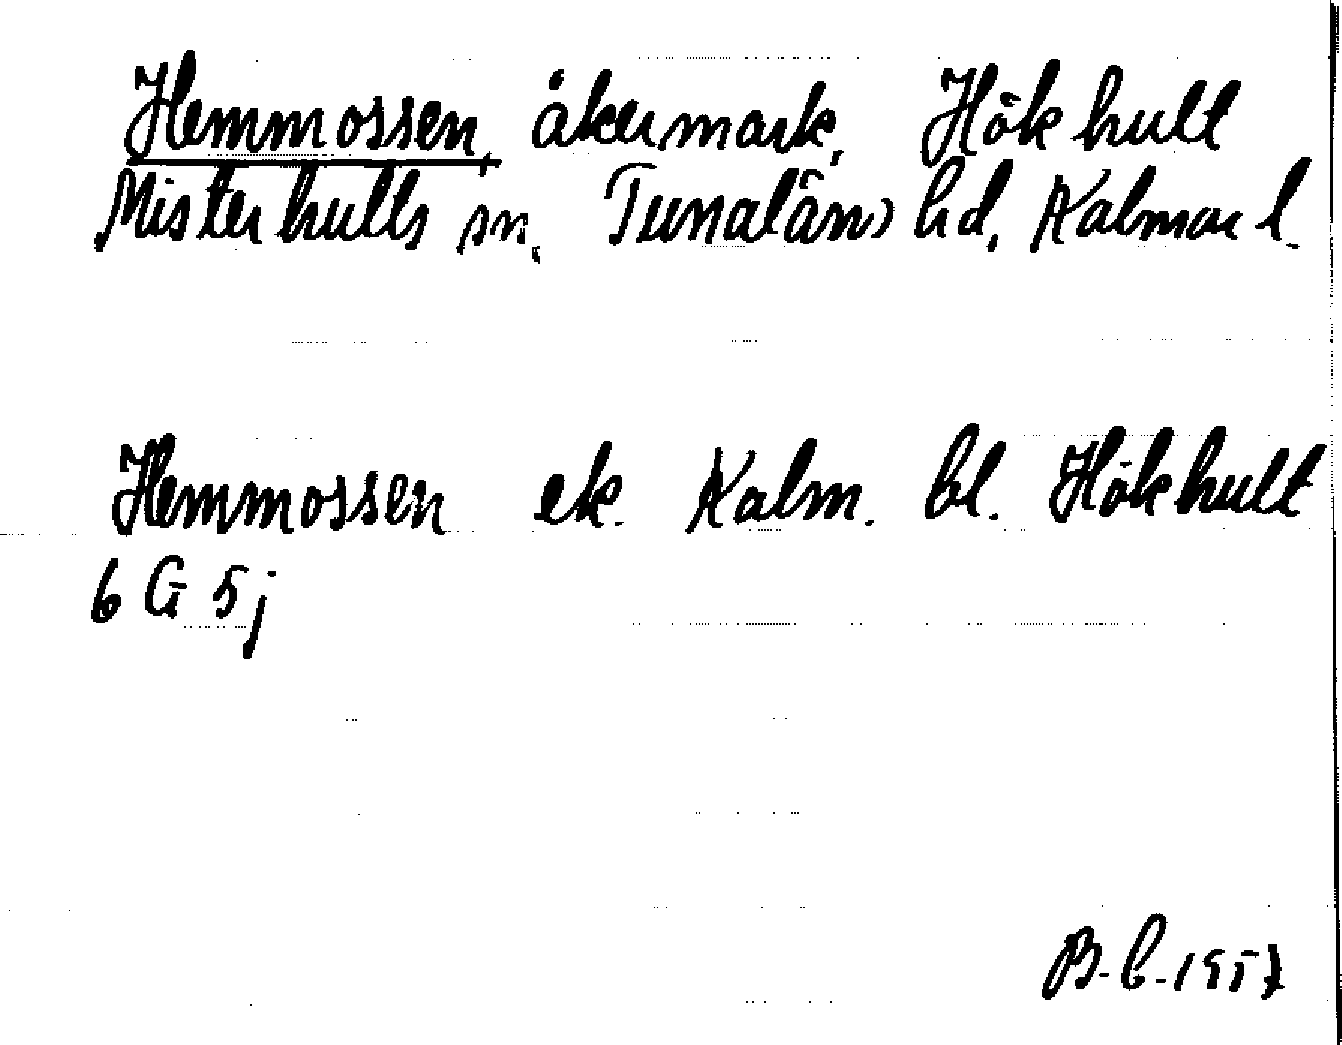 Hemmossen, åkermark, Hökhult
Misterhults sn, Tunaläns hd, Kalmar l.
Hemmossen ek. Kalm. bl. Hökhult
6 G 5j
B-b-1957